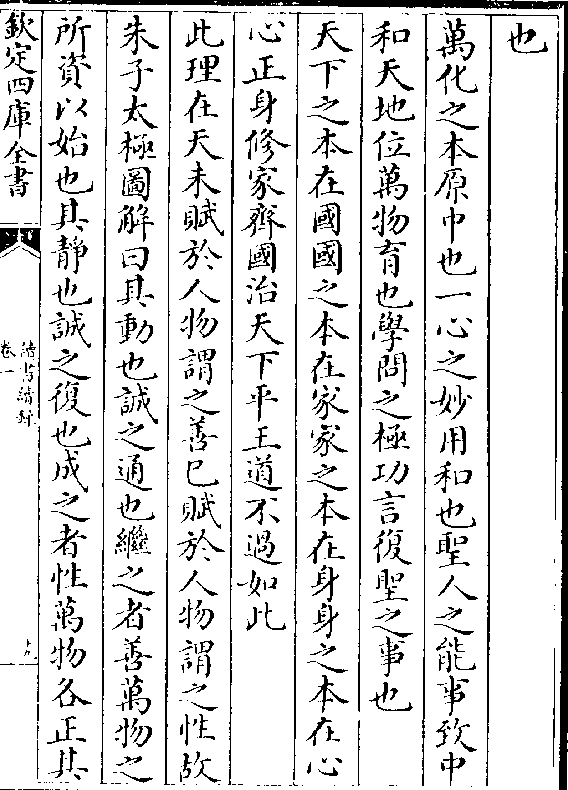 也
萬化之本原中也一心之妙用和也聖人之能事致中
和天地位萬物育也學問之極功言復聖之事也
天下之本在國國之本在家家之本在身身之本在心
心正身修家齊國治天下平王道不過如此
此理在天未賦於人物謂之善已賦於人物謂之性故
朱子太極圖解曰其動也誠之通也繼之者善萬物之
所資以始也其靜也誠之復也成之者性萬物各正其
欽定四庫全書
卷一
讀書續錄